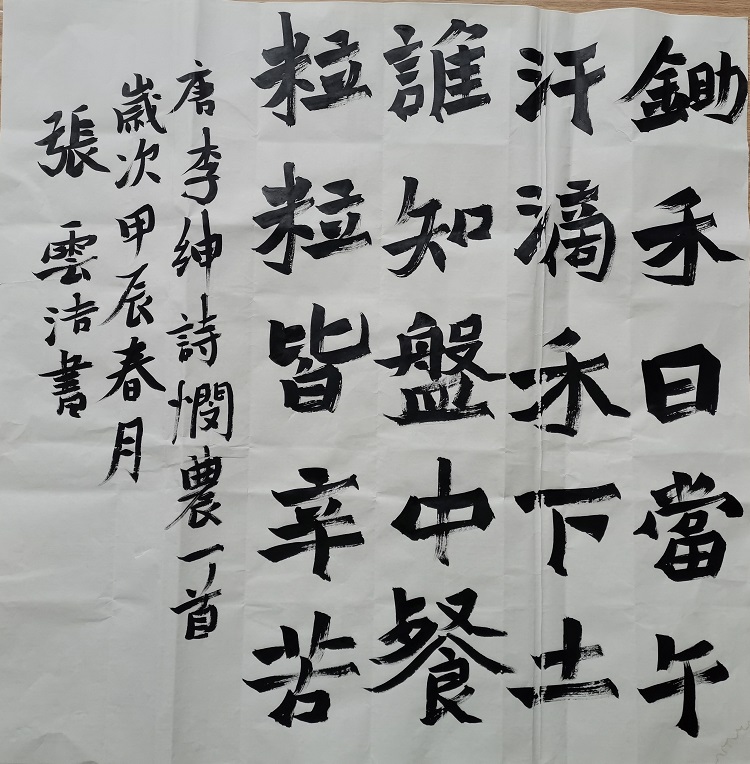 鋤禾日當午
汗滴禾下土
誰知盤中餐
粒粒皆辛苦
唐李紳詩憫農一首
歲次甲辰春月
張雲洁書